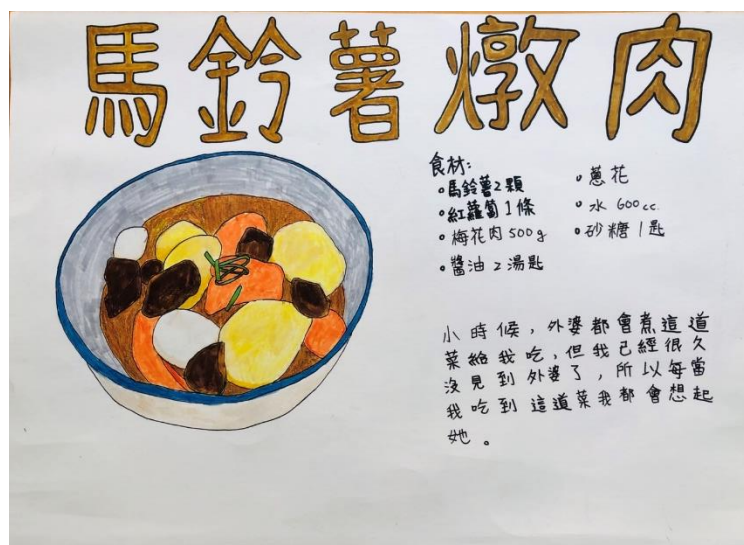 馬鈴薯燉肉
食材:
•馬鈴薯2顆
•紅蘿蔔1條
•梅花肉500g
•醬油2湯匙
•蔥花
•水600c.c.
•砂糖1匙
小時候，外婆都會煮這道
菜給我吃，但我已經很久
沒見到外婆了，所以每當
我吃到這道菜我都會想起
她。